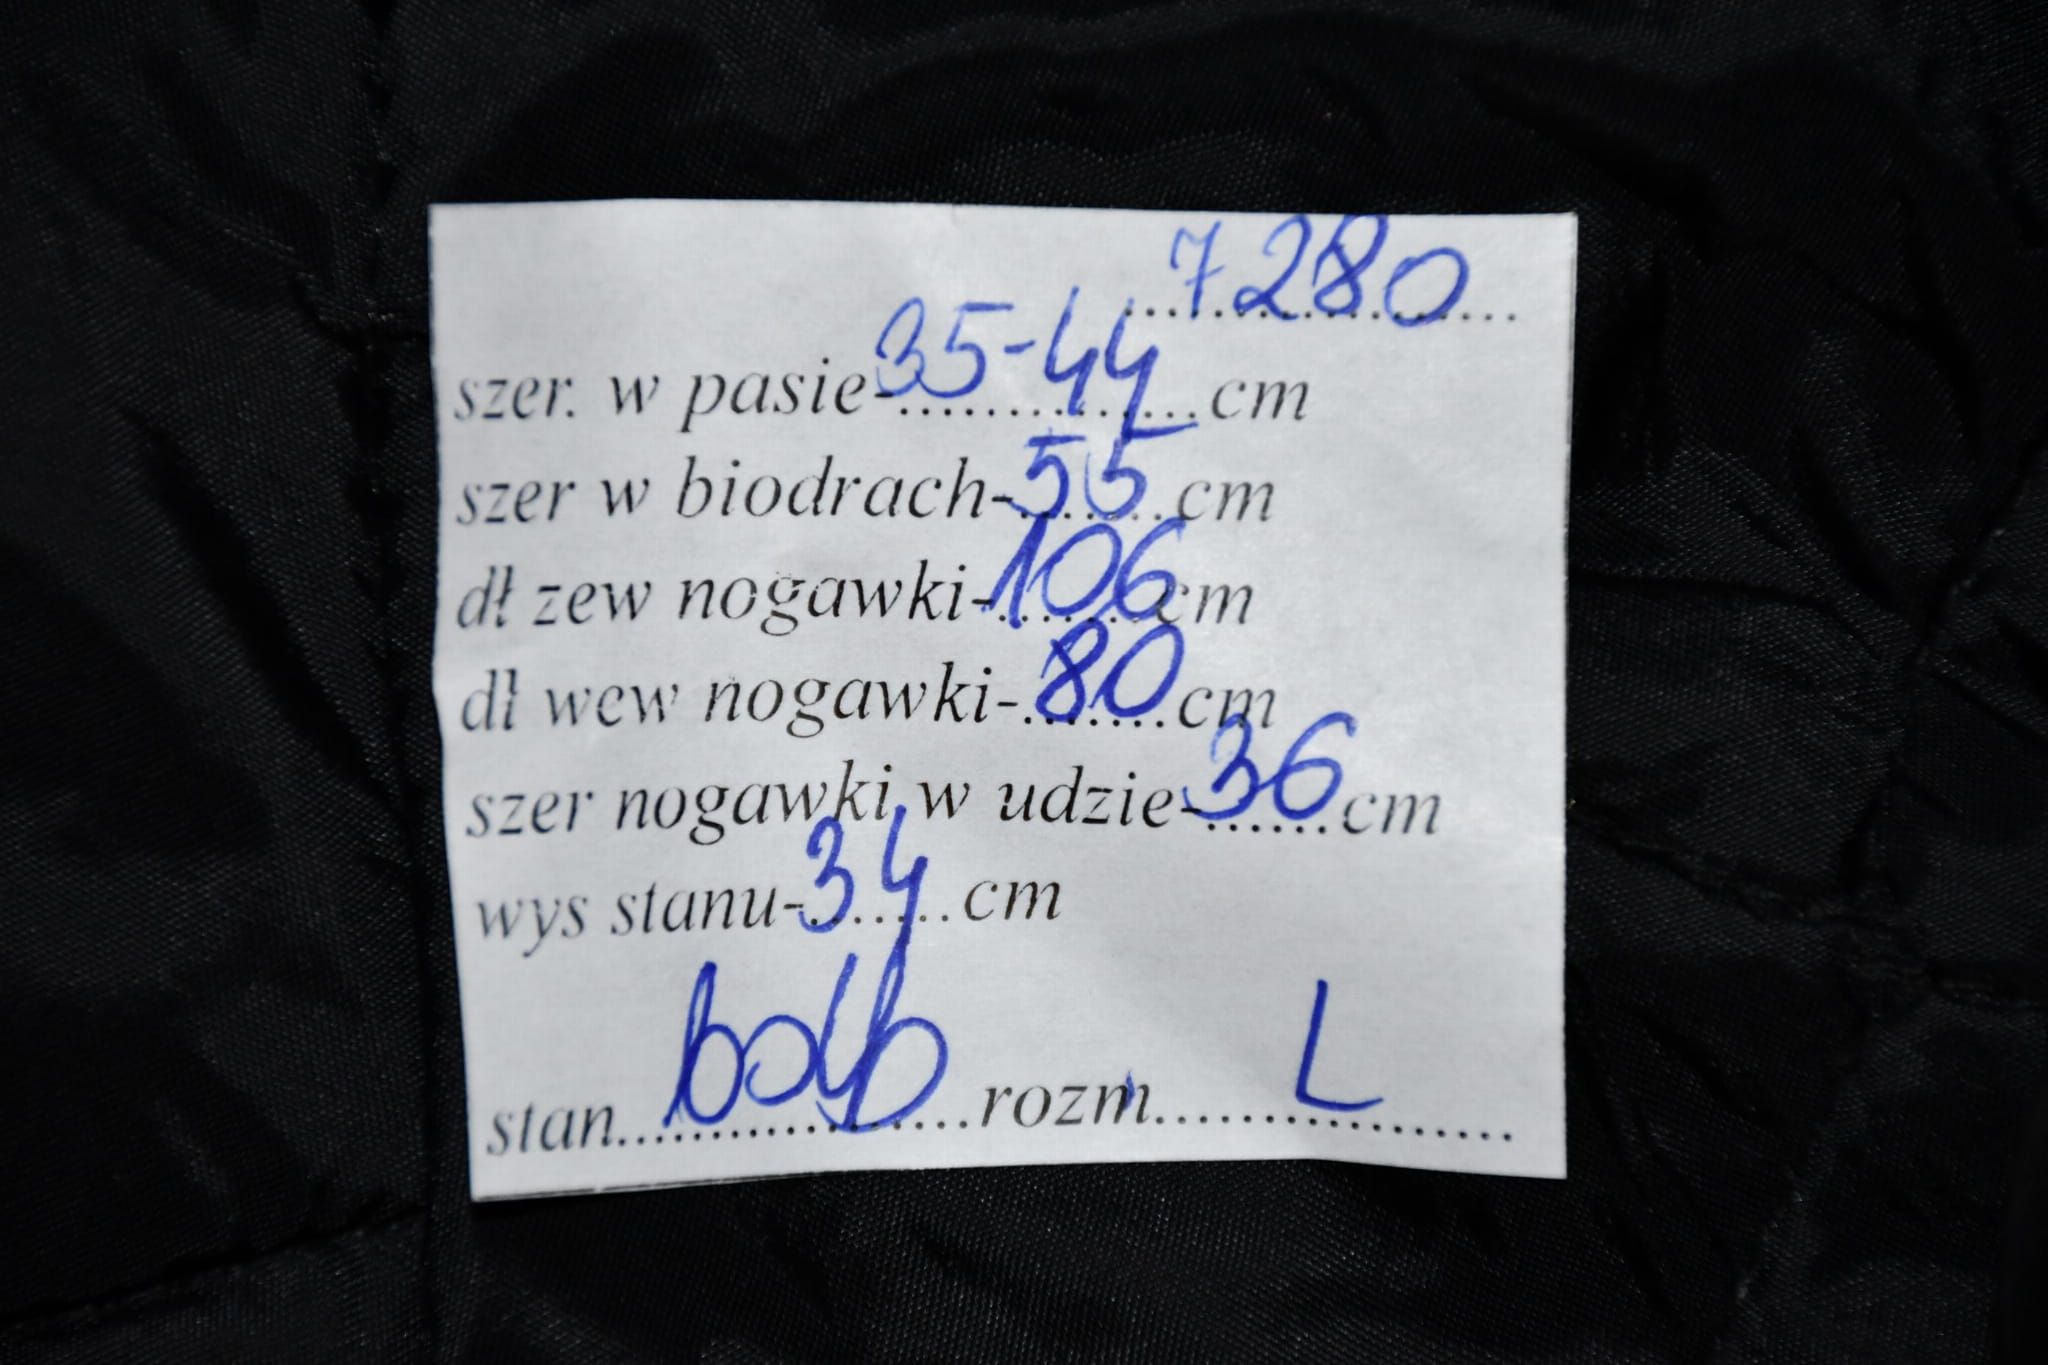 7280
szer. w pasie-35-44cm
szer w biodrach-55cm
dł zew nogawki-106cm
dł wew nogawki-80cm
szer nogawki w udzie-36cm
wys stanu-34cm
stan rozm L